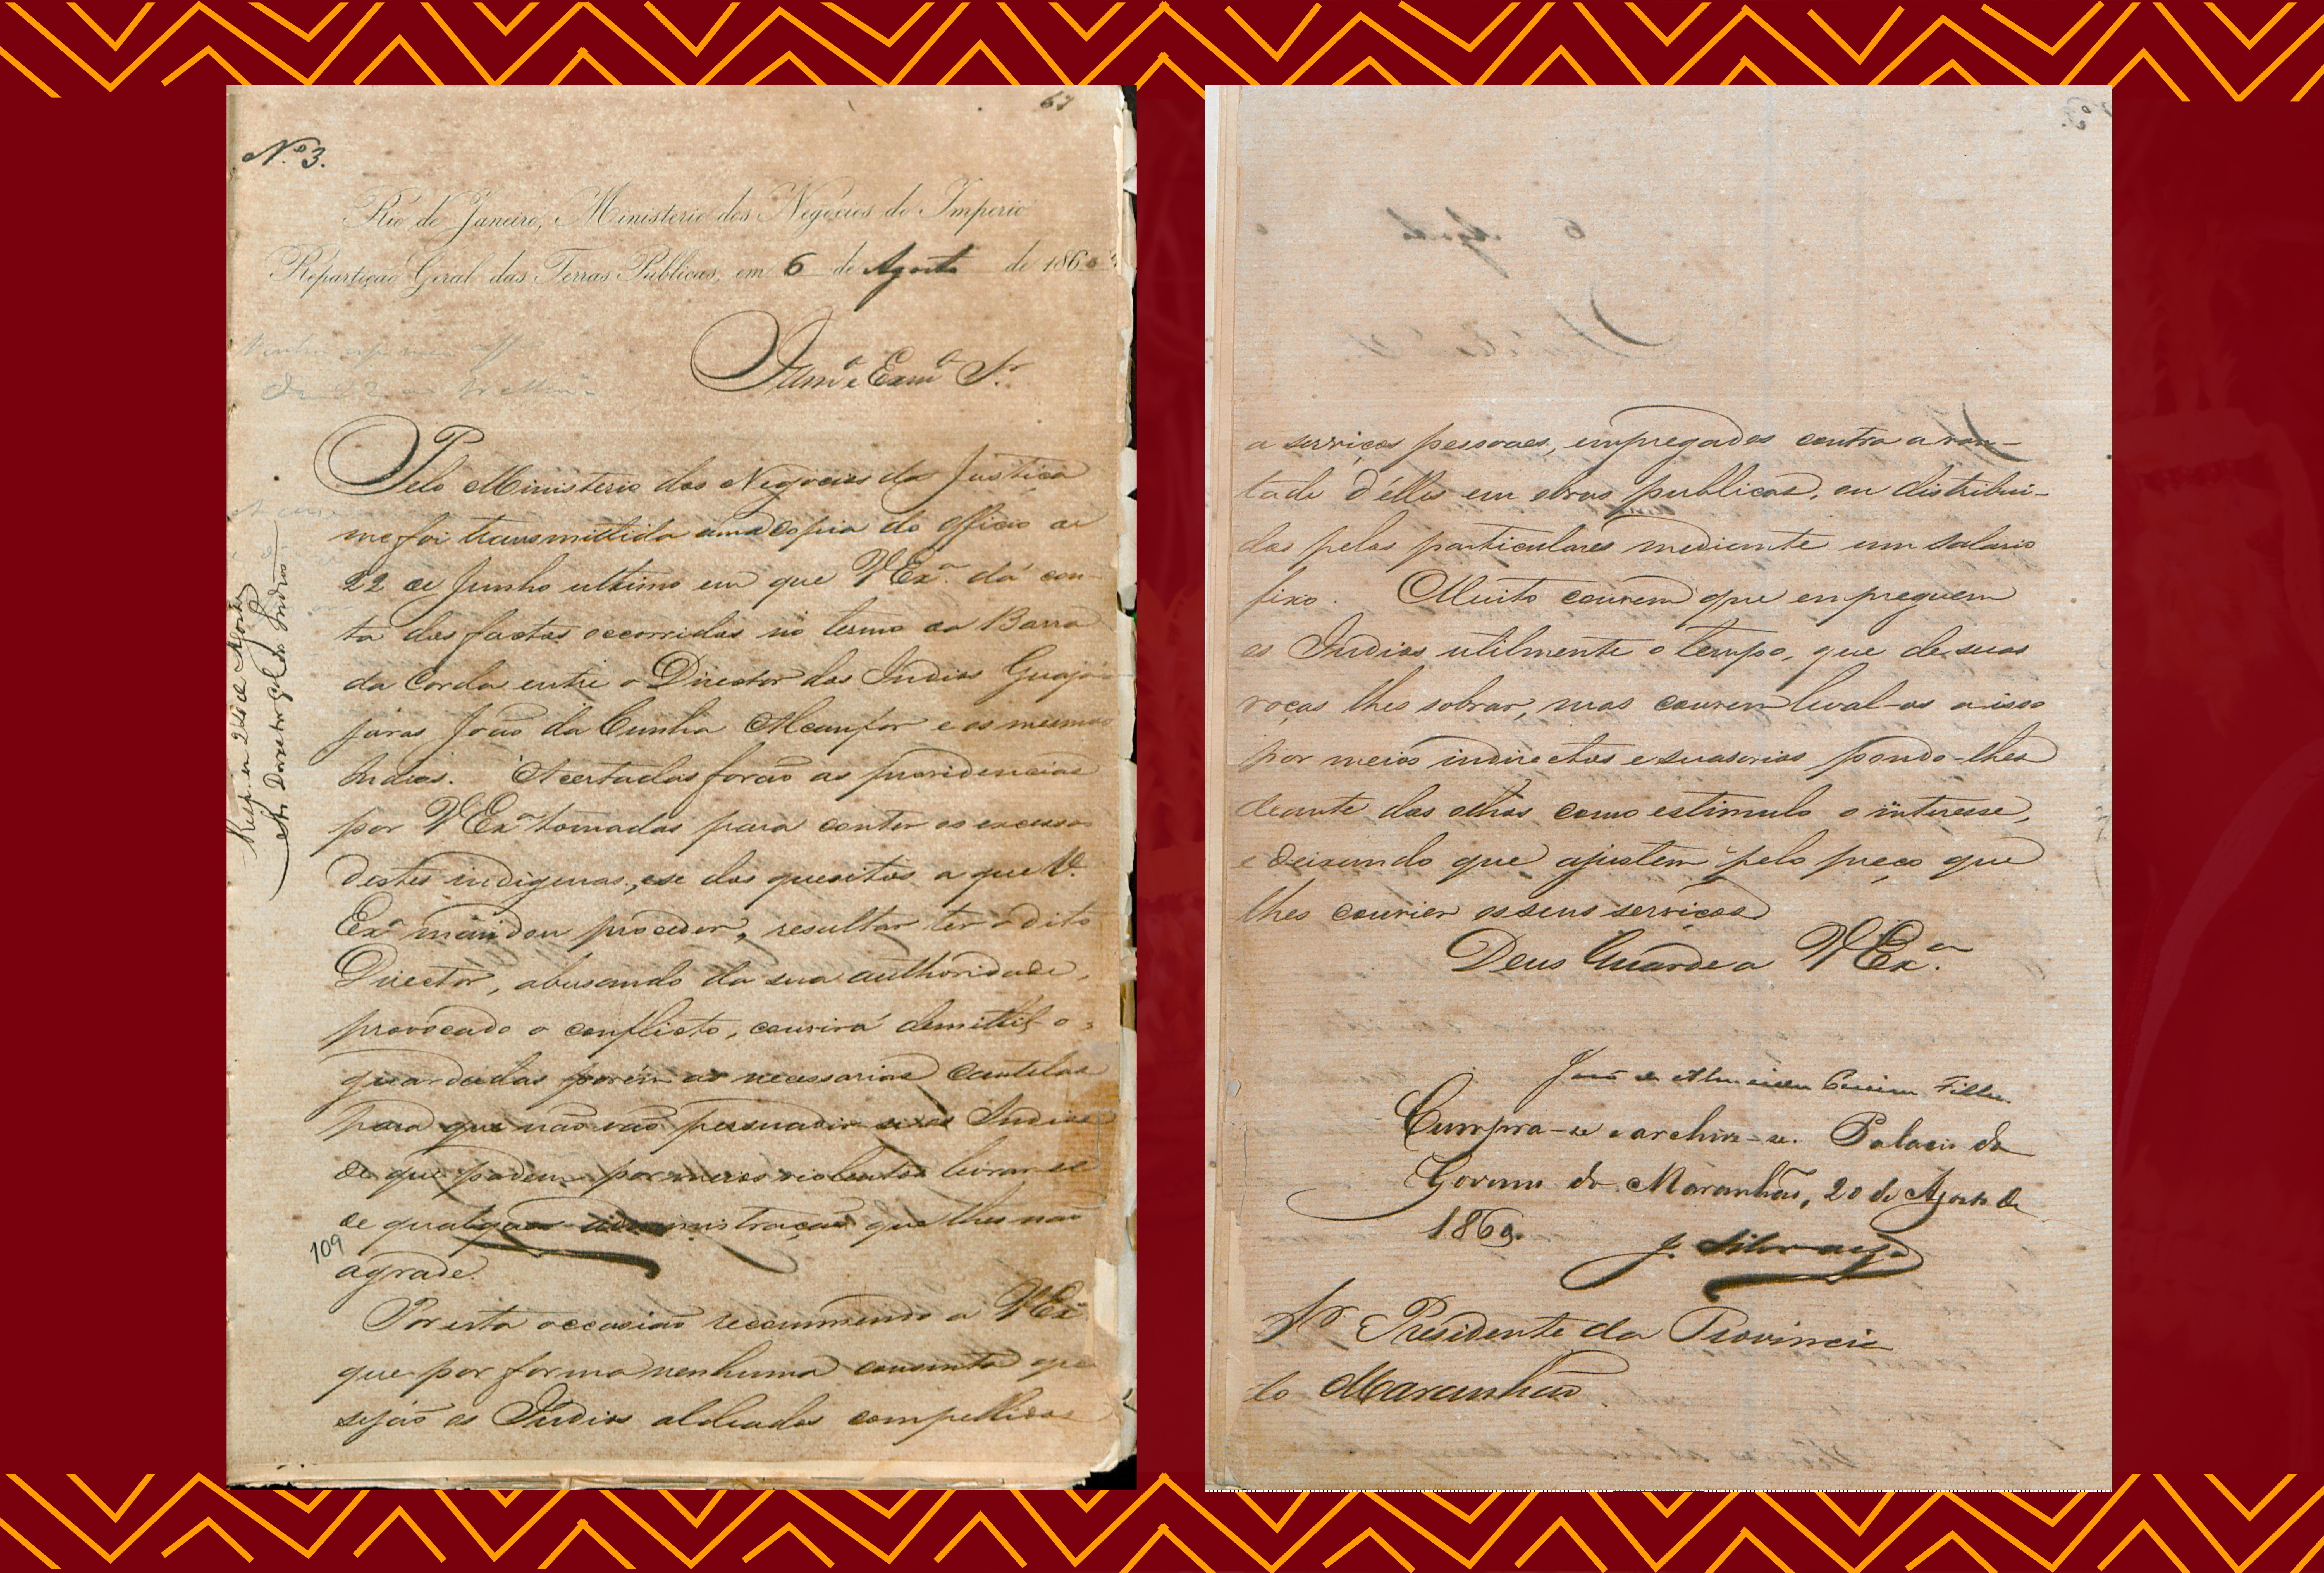 67
N.º 3.
Rio de Janeiro, Ministerio dos Negocios do Imperio
Repartição Geral das Terras Publicas, em 6 de Agosto de 1860
Illmº e Exmº Sr.
Pelo Ministerio dos Negocios da Justiça
me foi transmittida uma copia do officio de
22 de Junho ultimo em que V Exª dá con-
ta dos factos occorridos no termo da Barra
da Corda entre o Director dos Indios Guaja-
jaras João da Cunha Alcanfor e os mesmos
Indios. Acertadas forão as providencias
por V Exª tomadas para conter os excessos
destes indigenas, e se dos quesitos a que V.
Exª mandou proceder, resultar ter o dito
Director, abusando da sua authoridade,
provocado o conflicto, convirá demittil-o,
guardadas porém as necessarias cautelas
para que não vão persuadir-se os Indios
de que podem por meios violentos livrar-se
de qualquer administração que lhes não
agrade.
Por esta occasião recommendo a V Exª
que por forma nenhuma consinta que
sejão os Indios aldeados compellidos
Resp. em 24 de Agosto
ao Director Gal. dos Indios
109
a serviços pessoaes, empregados contra a von-
tade d'elles em obras publicas, ou distribui-
dos pelos particulares mediante um salario
fixo. Muito convem que empreguem
os Indios utilmente o tempo, que de suas
roças lhes sobrar, mas convem leval-os a isso
por meios indirectos e suasorios pondo-lhes
deante dos olhos como estimulo o interesse,
e deixando que ajustem pelo preço que
lhes convier os seus serviços
Deus Guarde a V Exª.
João de Almeida Pereira Filho.
Cumpra-se e archive-se. Palacio do
Governo do Maranhão, 20 de Agosto de
1860.
J. Silveira
Sr. Presidente da Provincia
do Maranhão